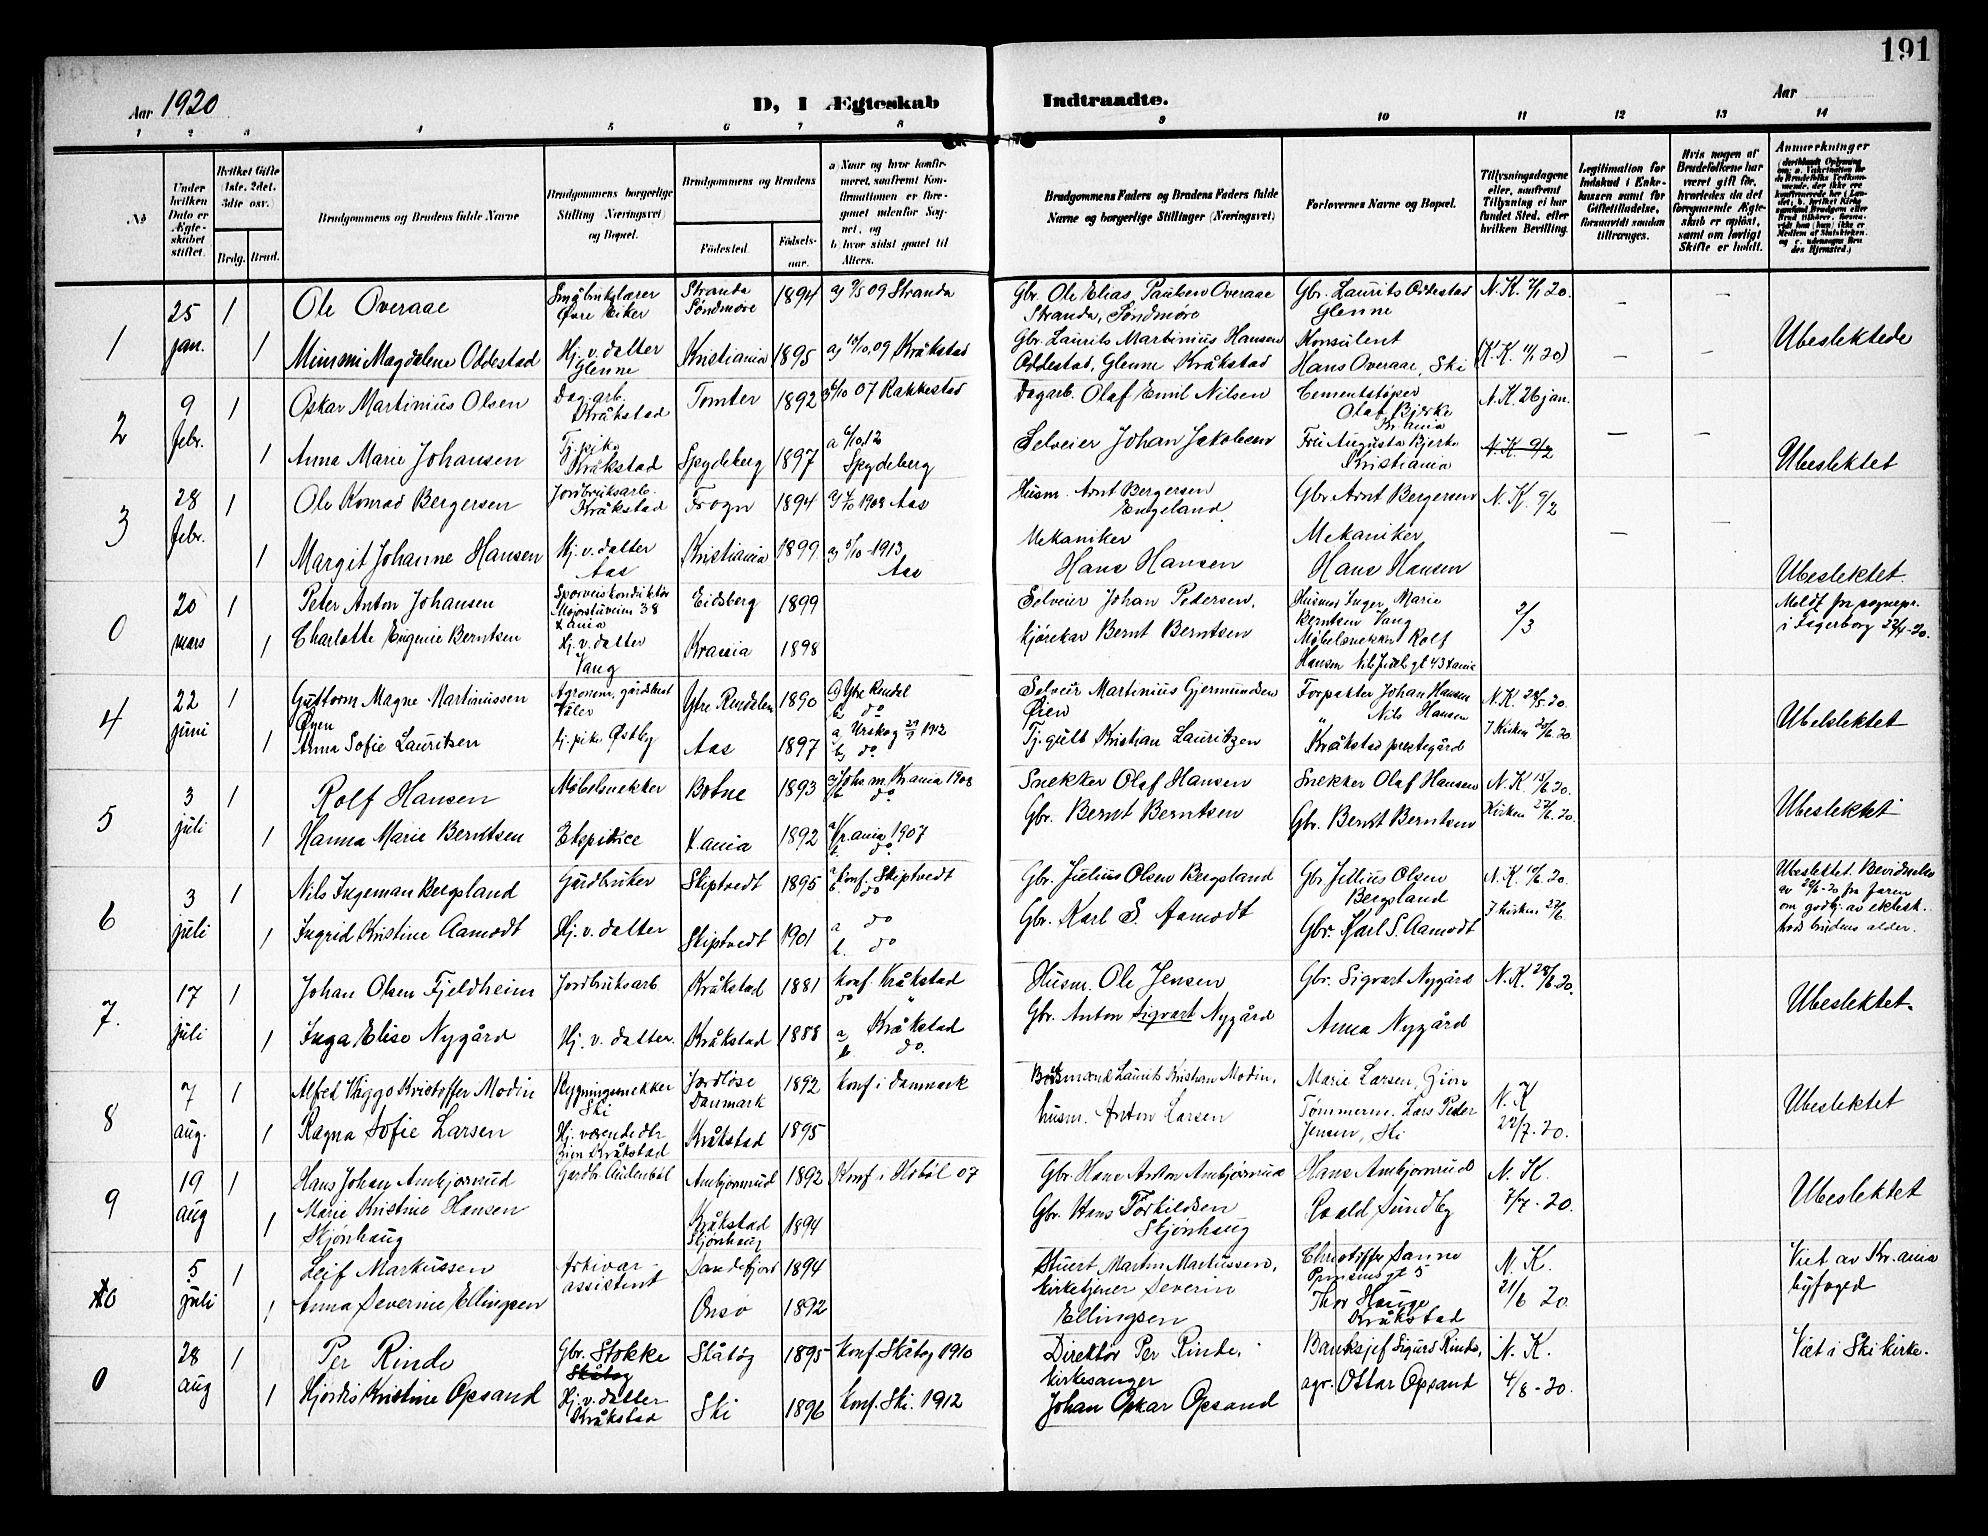 191
Aar 1920
D, I Ægteskab Indtraadte.
Aar
1 2 3 4 5 6 7 8 9 10 11 12 13 14
No
Under hvilken Dato er Ægteskabet stiftet.
Hvilket Gifte (1ste, 2det, 3die osv.)
Brdg. Brud.
Brudgommens og Brudens fulde Navne
Brudgommens borgerlige Stilling (Næringsvei) og Bopæl.
Brudgommens og Brudens
Fødested. Fødselsaar.
a Naar og hvor konfirmeret, saafremt Konfirmationen er foregaaet udenfor Sognet, og
b hvor sidst gaaet til Alters.
Brudgommens Faders og Brudens Faders fulde Navne og borgerlige Stillinger (Næringsvei)
Forlovernes Navne og Bopæl.
Tillysningsdagene eller, saafremt Tillysning ei har fundet Sted, efter hvilken Bevilling.
Legitimation for Indskud i Enkekassen samt for Giftetilladelse, forsaavidt saadan tiltrænges.
Hvis nogen af Brudefolkene har været gift før, hvorledes da det foregaaende Ægteskab er opløst, samt om lovligt Skifte er holdt.
Anmærkninger
1 25 jan. 1 Ole Overaae Småbrukslærer Øvre Eiker Stranda Søndmøre 1894 a) 9/5 09 Stranda Gbr. Ole Elias Paulsen Overaae Stranda, Søndmøre Gbr. Laurits Oddestad Glenne N.K. 7/1 20. – –
1 Mimmi Magdalene Oddestad Hj. v. datter Glenne Kristiania 1895 a) 10/10 09 Kråkstad Gbr. Laurits Martinius Hansen Oddestad, Glenne Kråkstad Konsulent Hans Overaae, Ski (K.K. 11/1 20) – – Ubeslektede
2 9 febr. 1 Oskar Martinius Olsen Dagarb. Kråkstad Tomter 1892 6/10 07 Rakkestad Dagarb. Olaf Emil Nilsen Cementstøper Olaf Bjerke Kr.ania N.K. 26 jan.
1 Anna Marie Johansen Tj.pike Kråkstad Spydeberg 1897 a 6/10 12 Spydeberg Selveier Johan Jakobsen Fru Augusta Bjerke Kristiania N.K. 9/2 – – Ubeslektet
3 28 febr. 1 Ole Konrad Bergersen Jordbruksarb. Kråkstad Frogn 1894 a) 4/10 1908 Aas Husm. Arnt Bergersen Engeland. Gbr Arnt Bergersen N.K. 9/2
1 Margit Johanne Hansen Hj. v. datter Aas Kristiania 1899 a) 5/10 1913 Aas Mekaniker Hans Hansen Mekaniker Hans Hansen – – Ubeslektet.
0 20 mars 1 Peter Anton Johansen Sporveiskonduktør Majorstuveien 38 Kania Eidsberg 1899 Selveier Johan Pedersen, Husmor Inger Marie Berntsen Vang 2/3 Meldt fra sognepr. i Fagerborg 22/4-20.
1 Charlotte Eugenie Berntsen Hj. v. datter Vang Krania 1898 kjørekar Bernt Berntsen Møbelsnekker Rolf Hansen Nils Juels gt 43 Kania
4 22 juni 1 Guttorm Magne Martinussen Øyen Agronom, gårdsbest Våler Ytre Rendalen 1890 a) Ytre Rendal b do Selveier Martinius Gjermundsen Øien Forpakter Johan Hansen N.K. 28/5-20.
1 Anna Sofie Lauritsen tj. pike Østby Aas 1897 a, Urskog 29/9 1912 b, do Tj.gutt Kristian Lauritzen " Nils Hansen Kråkstad prestegård I Kirken 20/6 20 Ubelslektet
5 3 juli 1 Rolf Hansen Møbelsnekker Botne 1893 a) Johs. m. Krania 1908 b do Snekker Olaf Hansen Snekker Olaf Hansen N.K. 15/6 20.
1 Hanna Marie Berntsen K.ania 1892 a Kr.ania 1907 b. do Gbr. Bernt Berntsen Gbr. Bernt Berntsen Kirken 27/6 20. Ubeslektet
6 3 juli 1 Nils Ingeman Bergsland Gårdbruker Skiptvedt 1895 a konf. Skiptvedt b do Gbr. Julius Olsen Bergsland Gbr Julius Olsen Bergsland N.K. 14/6 20. Ubeslektet. Bevidnelse av 28/6-20 fra faren om godkj. av ektesk. trods brudens alder.
1 Ingrid Kristine Aamodt Hj. v. datter Skiptvedt 1901 a do b. do Gbr. Karl S. Aamodt Gbr. Karl S. Aamodt I kirken 27/6.
7. 17 juli 1 Johan Olsen Fjeldheim Jordbruksarb Kråkstad 1881 konf. Kråkstad do " Husm. Ole Jensen Gbr. Sigvart Nygård N.K. 28/6 20.
1 Inga Elise Nygård Hj. v. datter. Kråkstad 1888 a, Kråkstad b. do. Gbr. Anton Sigvart Nygård Anna Nygård Ubeslektet.
8 7 aug. 1 Alfred Viggo Kristoffer Modin Bygningssnekker Ski Jordløse Danmark 1892 Konf i Danmark Laurits Kristian Modin, Marie Larsen, Gien N.K 22/7-20.
1 Ragna Sofie Larsen Hj. værende dtr Gien Kråkstad Kråkstad 1895 husm. Anton Larsen Tømmerm. Lars Peder Jensen, Ski Ubeslektet
9 19 aug 1 Hans Johan Ambjørnrud Gårdbr. Audenbøl Ambjørnrud 1892 Konf i Hobøl 07 Gbr. Hans Anton Ambjørnrud Hans Ambjørnrud N.K. 7/7-20.
1 Marie Kristine Hansen Skjønhaug Kråkstad Skjønhaug 1894 Gbr. Hans Torkildsen Skjønhaug Roald Sundby Ubeslektet
10 5 juli 1 Leif Markussen Arkivarassistent Sandefjord 1894 Stuert Martin Markussen, Christoffer Sanne Prinsensgt 5 N.K. 21/6 20. Viet av Kr.ania byfoged
1 Anna Severine Ellingsen Onsø 1892 kirketjener Severin Ellingsen Thor Hauge Kråkstad
0 28 aug 1 Per Rinde Gbr. Stokke Skåtøy Skåtøy 1895 Konf. Skåtøy 1910 Direktør Per Rinde, Banksjef Sigurd Rinde, N.K. 4/8-20. Viet i Ski kirke.
1 Hjørdis Kristine Opsand Hj. v. datter Kråkstad Ski 1896 Konf. Ski. 1912 kirkesanger Johan Oskar Opsand agr. Ottar Opsand